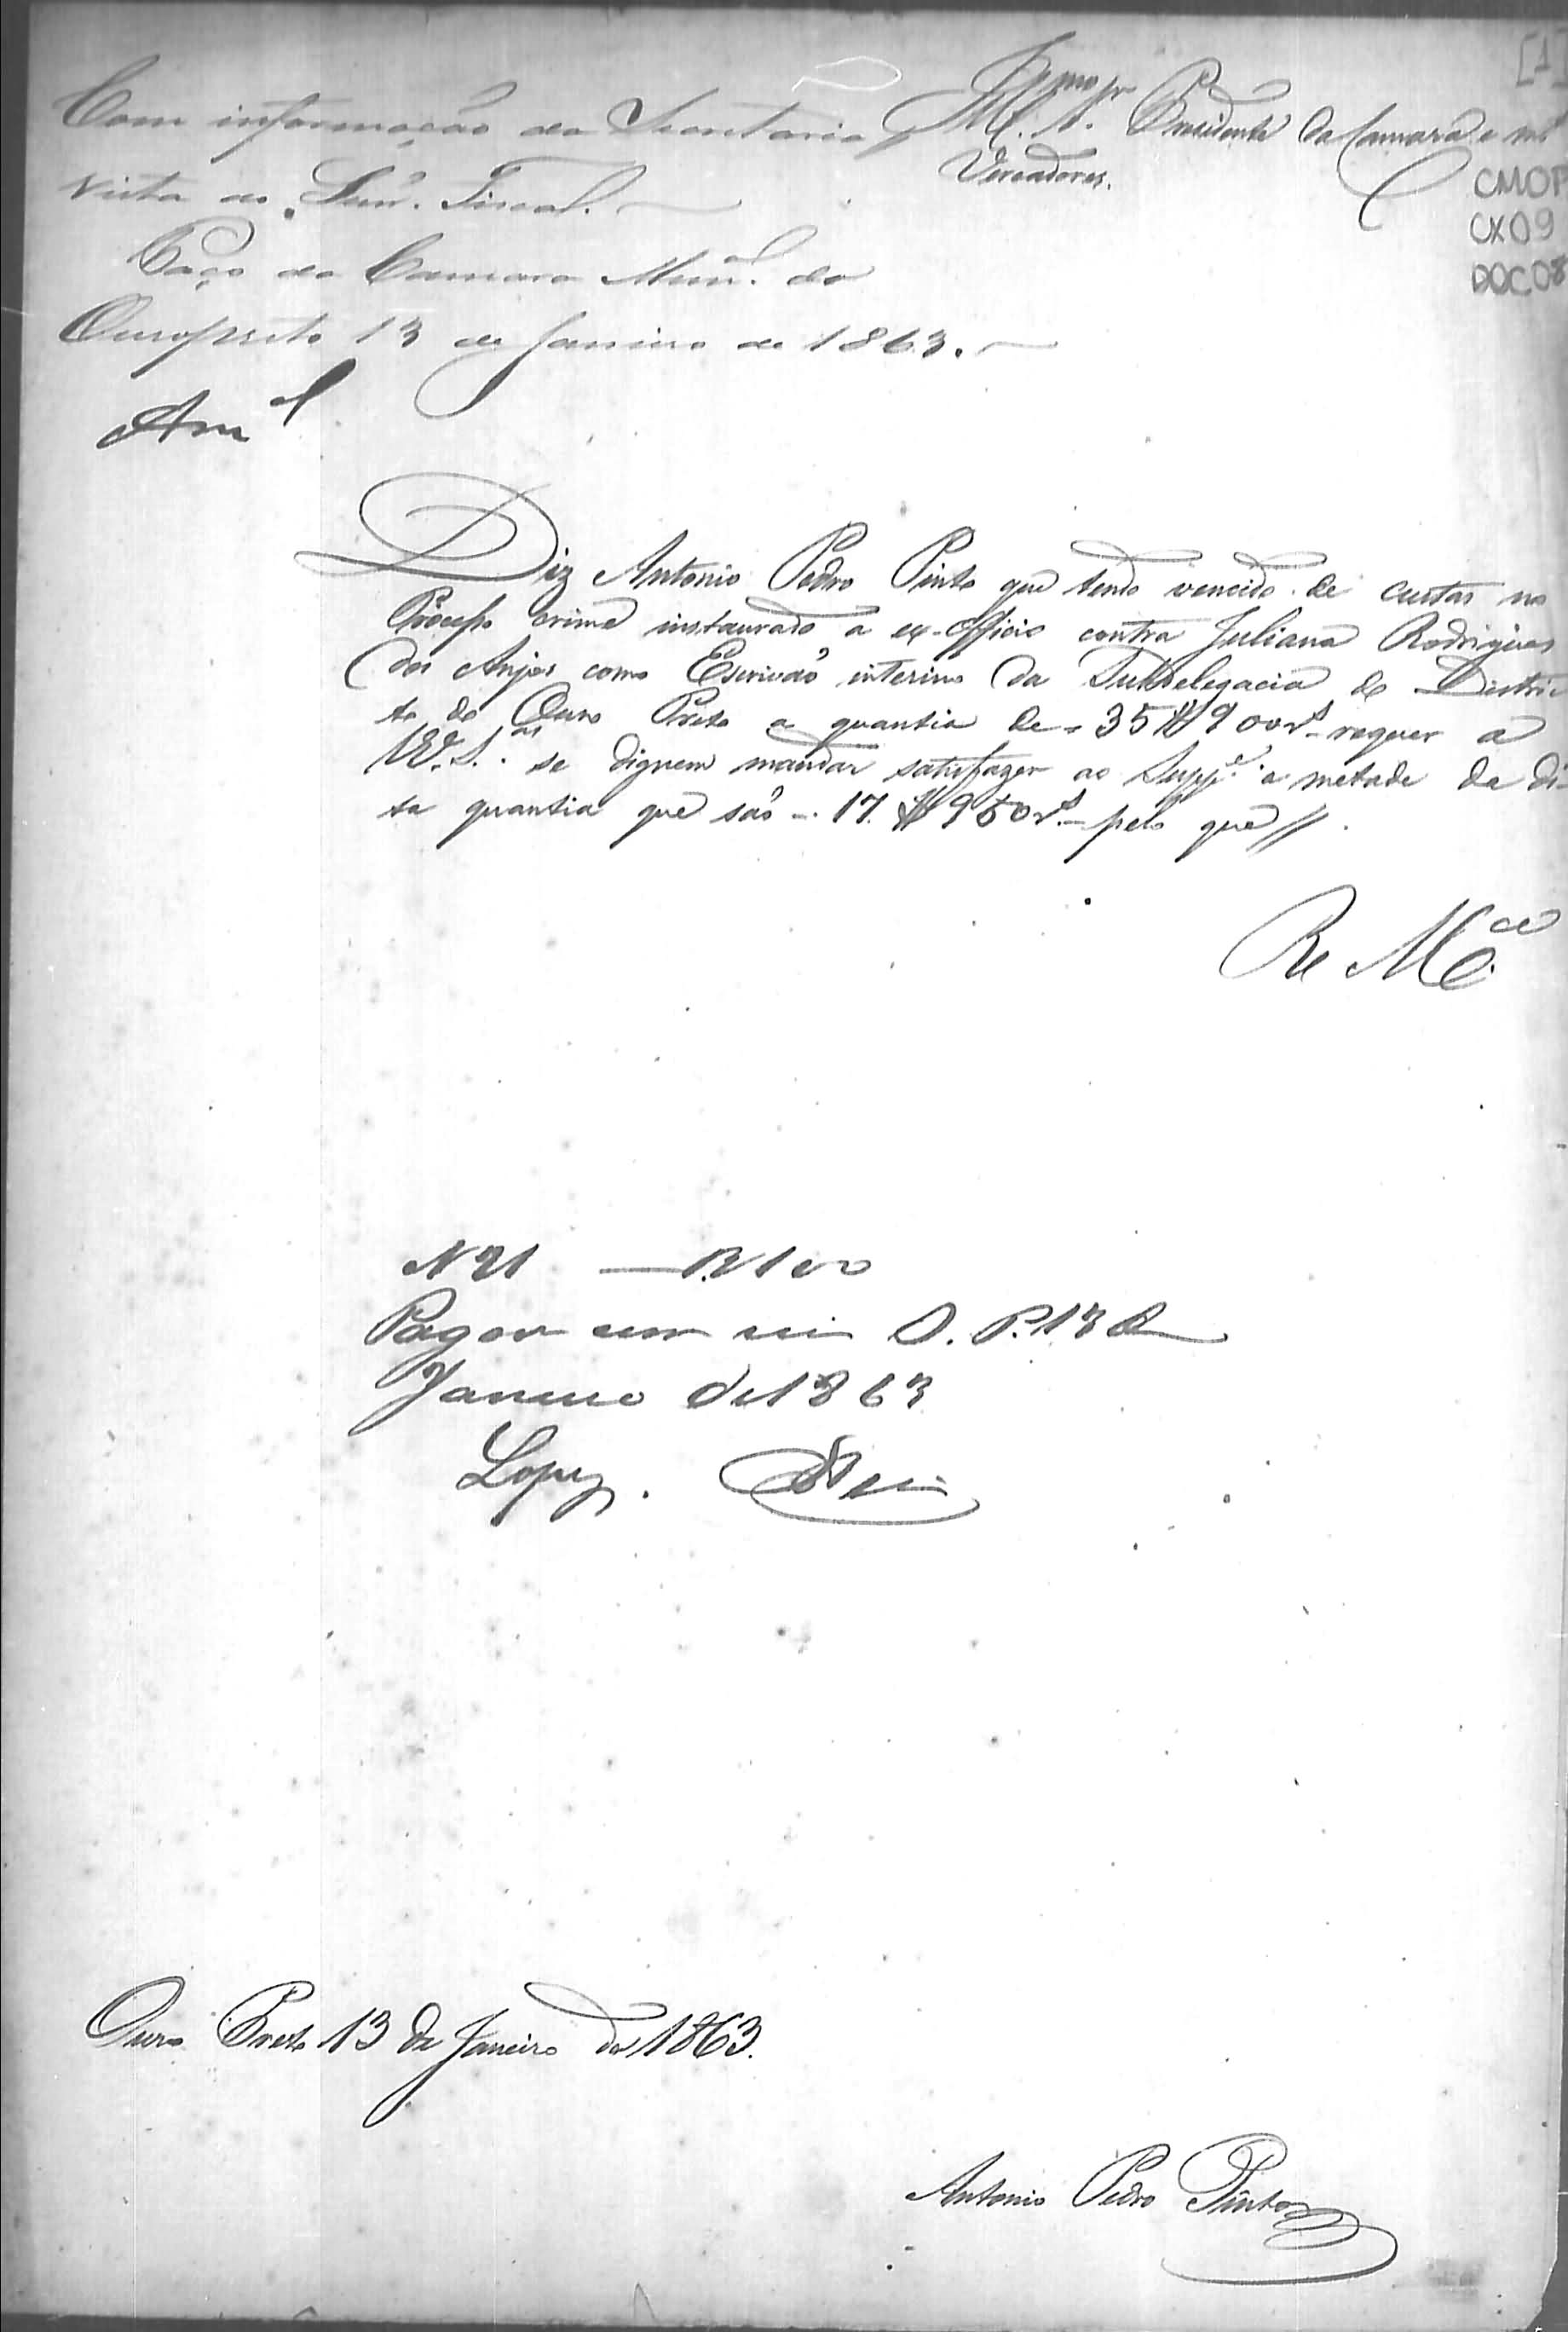 [1]
Illmos Snr. Presidente da Camara e mais
Vereadores.
CMOP
CX09
DOC08
Com informação da Secretaria
vista ao Snr. Fiscal.
Paço da Camara Mun.al do
Ouropreto 13 de Janeiro de 1863.
Diz Antonio Pedro Pinto que tendo vencido de custas no
Processo crime instaurado a ex-officio contra Juliana Rodrigues
dos Anjos como Escrivão interino da Subdelegacia do Distric-
to do Ouro Preto a quantia de = 35$900 rs - requer a
VV. S.as se dignem mandar satisfazer ao Supp.e a metade da di-
ta quantia que são - 17.$950 rs. - pelo que //
Re M.ce
N 21 — R 100
Pagou cem reis O. P. 13 de
Janeiro de 1863
Lopes.
Ouro Preto 13 de Janeiro de 1863.
Antonio Pedro Pinto